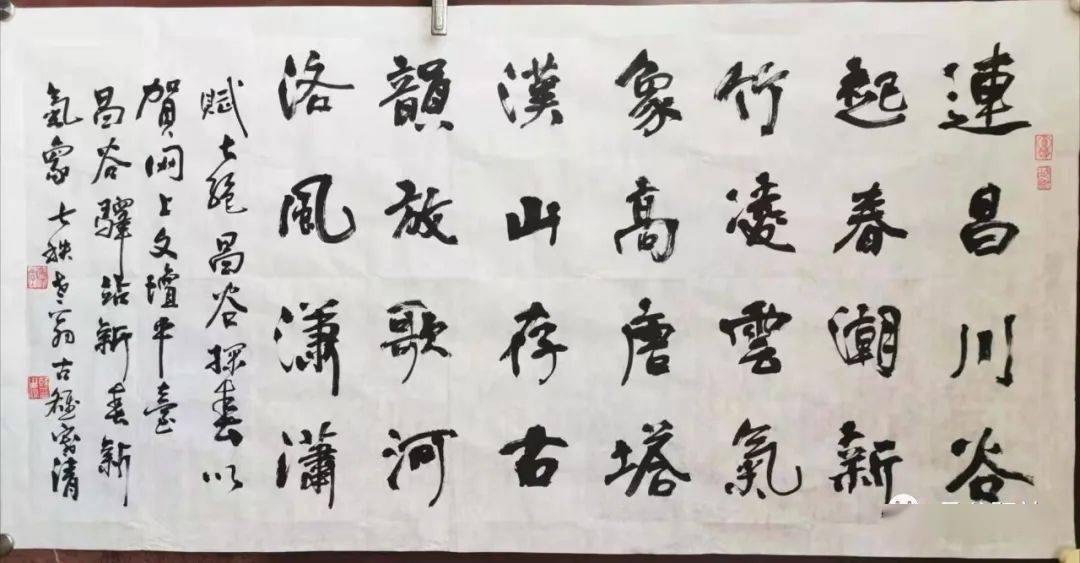 連昌川谷
起春潮新
竹凌雲氣
象高唐塔
漢山存古
韻放歌河
洛風瀟灑
賦七絕昌谷探春以
賀网上文壇平臺
昌谷驛站新春新
氣象七秩老翁古稀家清